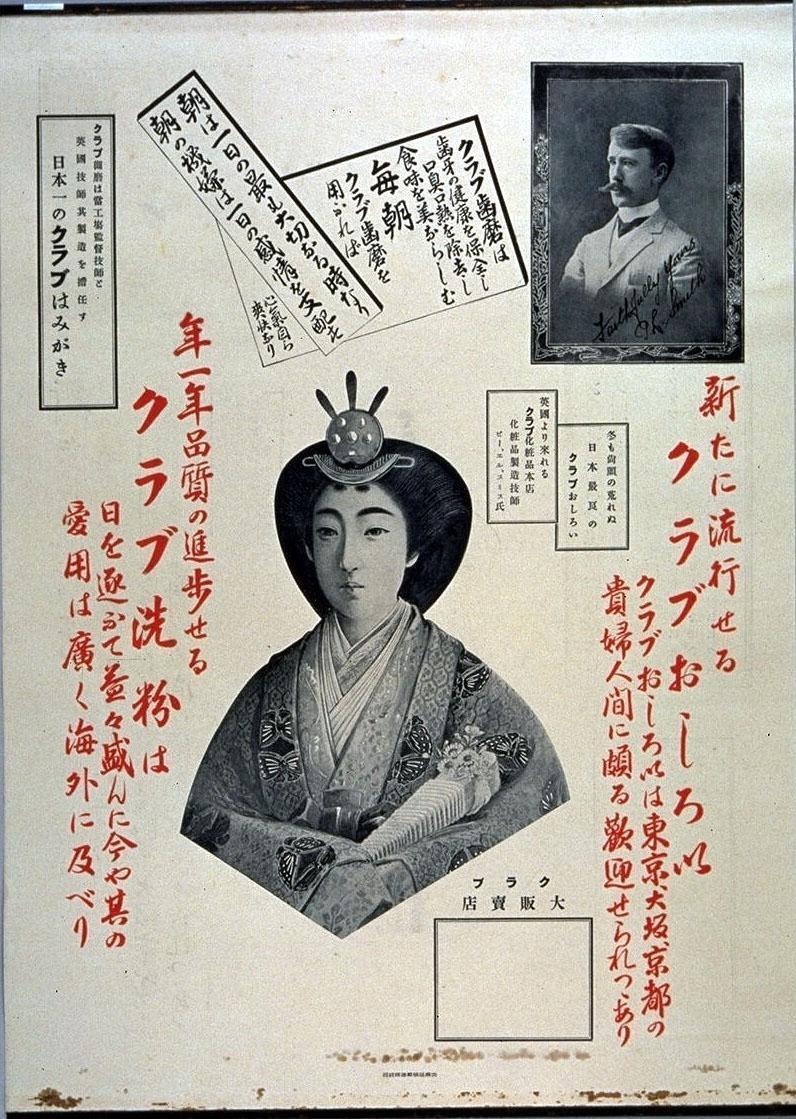 新たに流行せる
クラブおしろい
クラブおしろいは東京、大坂、京都の
貴婦人間に頗る歓迎せられつゝあり
Faithfully Yours
P.L. Smith
冬も尚顔の荒れぬ
日本最良の
クラブおしろい
英國より来れる
クラブ化粧品本店
化粧品製造技師
ピー、エル、スミス氏
クラブ歯磨は
歯牙の健康を保全し
口臭口熱を除去し
食味を美ならしむ
毎朝
クラブ歯磨を
用ふれば
心氣自ら
爽快なり
朝は一日の最も大切なる時なり
朝の機嫌は一日の感情を支配す
クラブ歯磨は當工場監督技師と
英國技師其製造を擔任す
日本一のクラブはみがき
年一年品質の進歩せる
クラブ洗粉は
日を逐ふて益々盛んに今や其の
愛用は廣く海外に及べり
クラブ
大販賣店